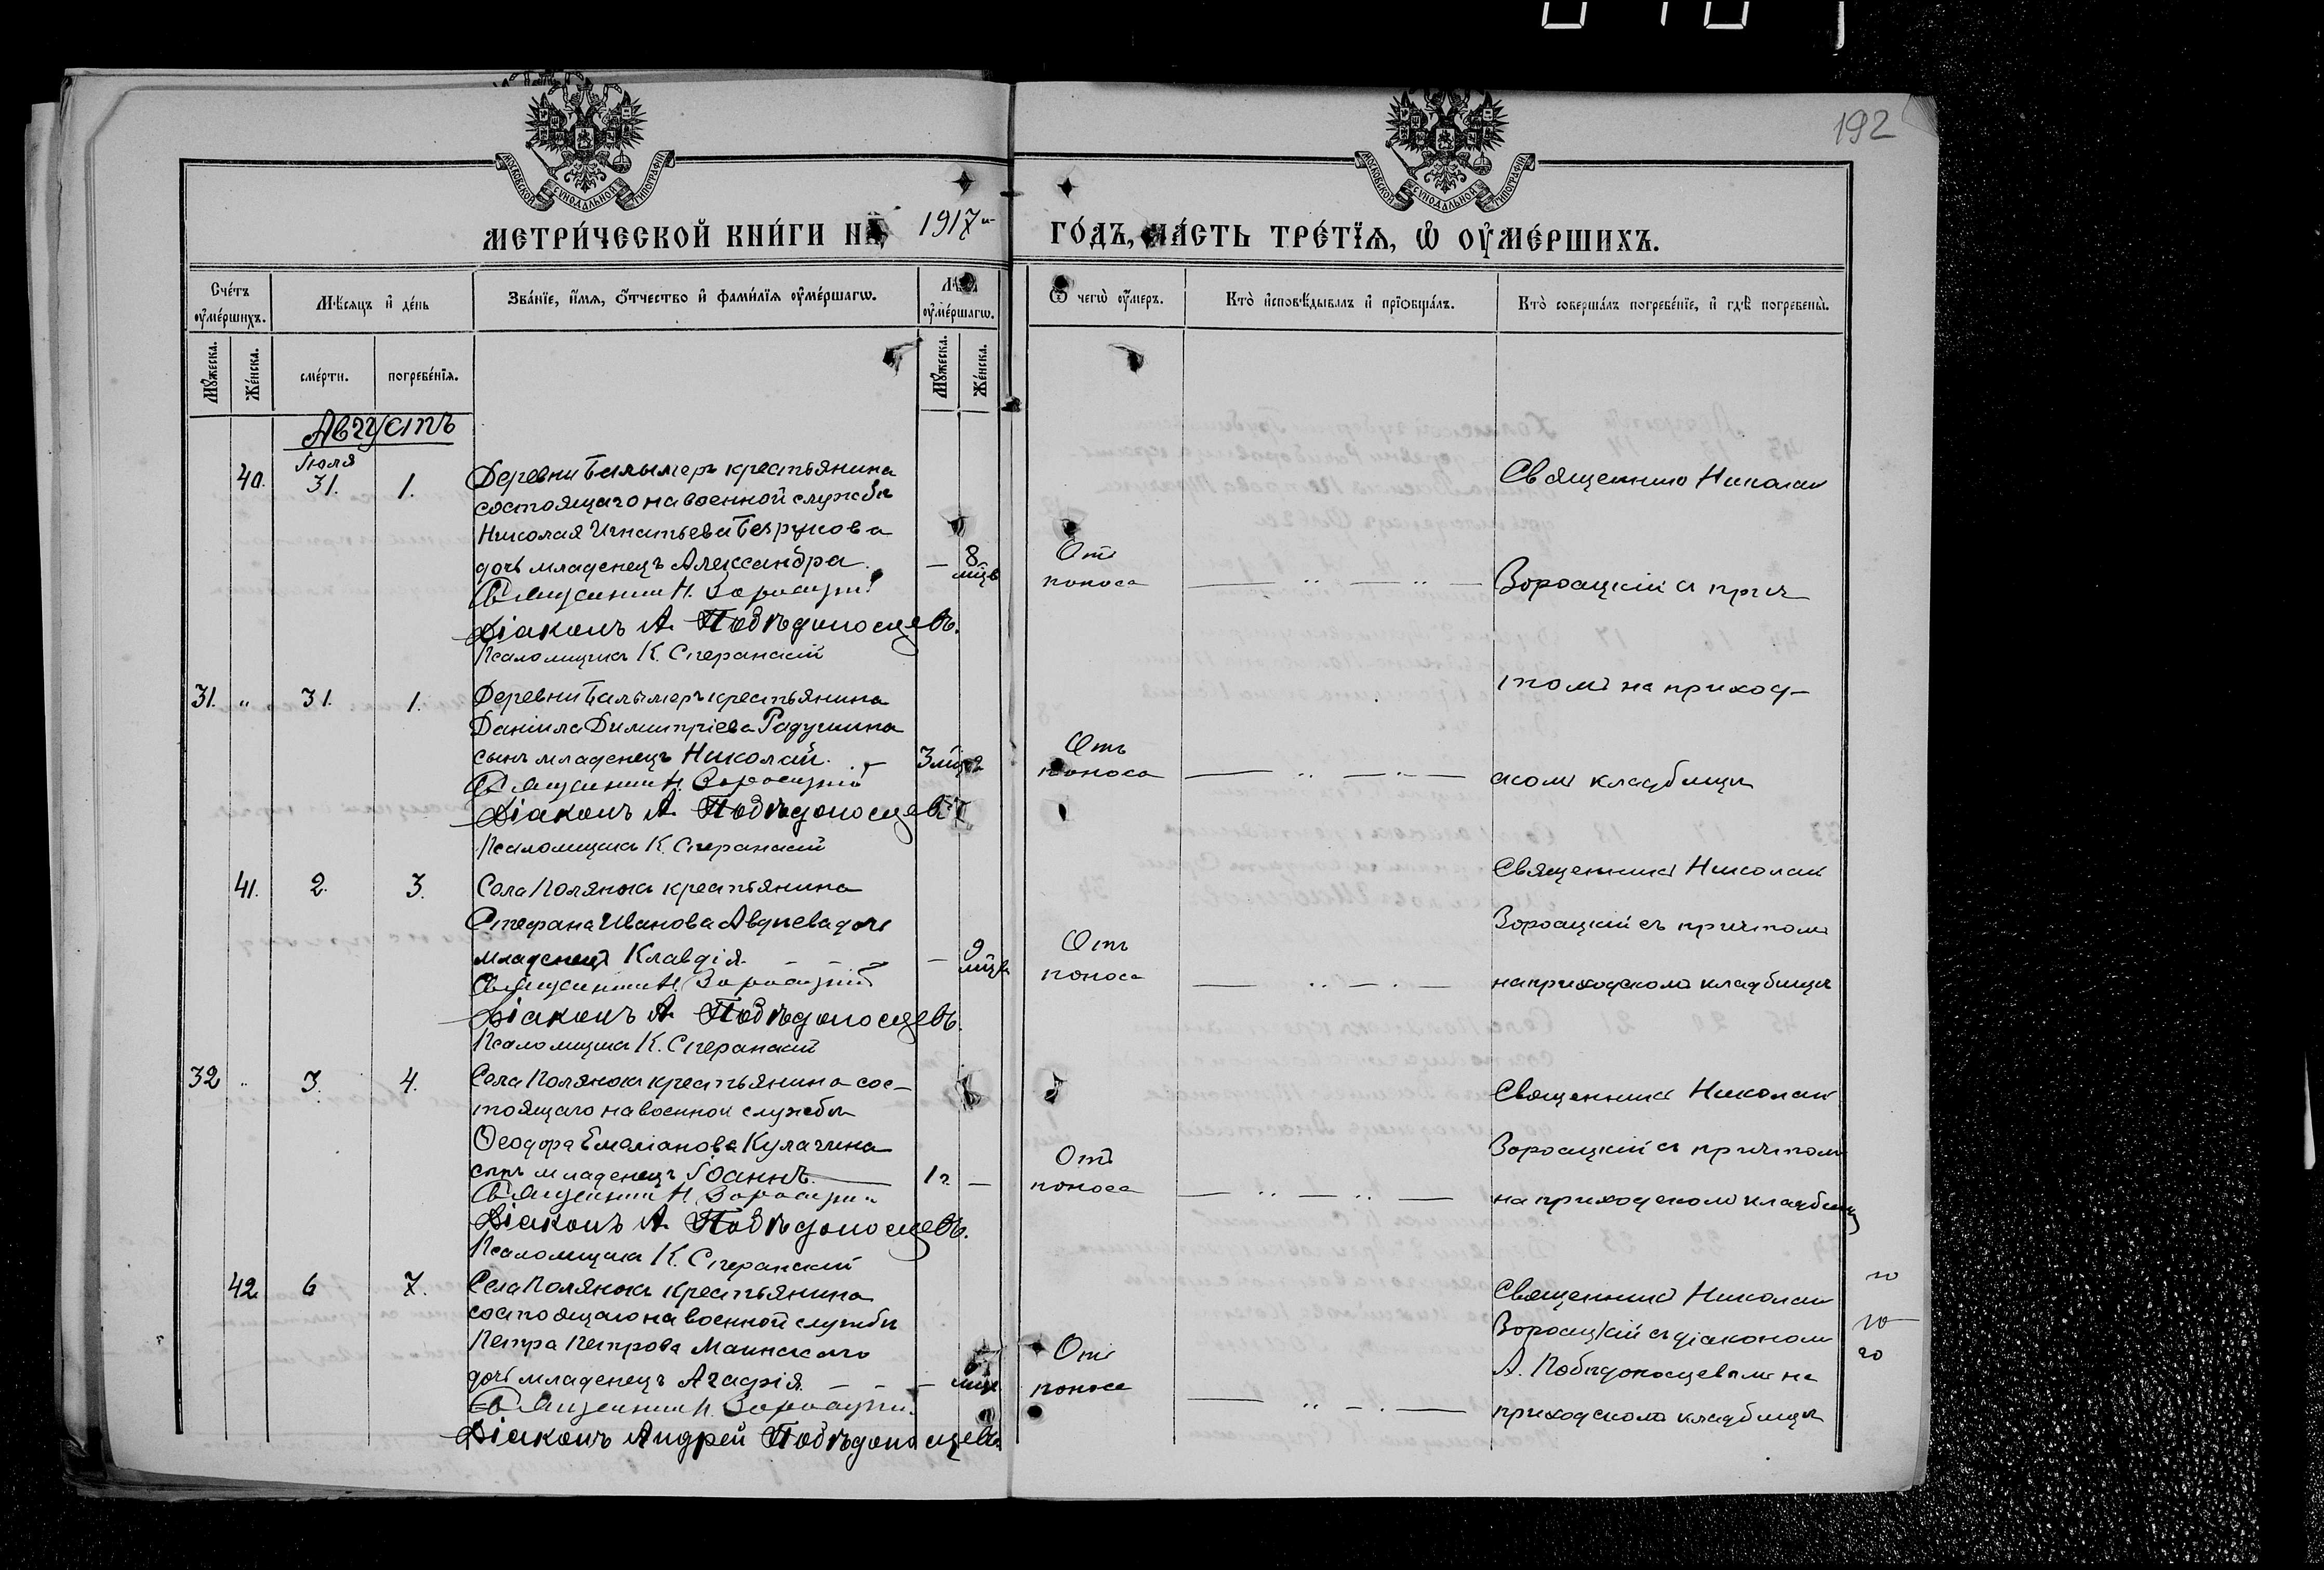 192
МОСКОВСКОЙ СУНОДАЛЬНОЙ ТИПОГРАФІИ
МОСКОВСКОЙ СУНОДАЛЬНОЙ ТИПОГРАФІИ
МЕТРИ́ЧЕСКОЙ КНИ́ГИ НА 1917 ГО́ДЪ, ЧА́СТЬ ТРЕ́ТІѦ, Ѡ ОУМЕ́РШИХЪ.
Сче́тъ оумершихъ.
Мѣсяцъ и де́нь
Зва́нїе, и́мѧ, о́тчество и фами́лїѧ оуме́ршагѡ.
Лѣта оуме́ршагѡ.
Ѿ чегѡ̀ оумеръ.
Кто̀ исповѣ́дывалъ и прїѡбща́лъ.
Кто̀ соверша́лъ погребе́нїе, и гдѣ̀ погребены̀.
Мꙋжеска.
Же́нска.
сме́рти.
погребе́нїѧ.
Мꙋжеска.
Же́нска.
Августъ
Іюля
40. 31. 1. Деревни Балымеръ крестьянина
состоящаго на военной службѣ
Николая Игнатьева Безрукова
дочь младенецъ Александра. — 8 мцв
Священник Н. Воронцкій
Діаконъ А. Побѣдоносцевъ.
Псаломщикъ К. Сперанскій
Отъ
поноса
Священникъ Николай
Воронцкій съ прич
томъ на приход-
скомъ кладбищѣ
31. " 31. 1. Деревни Балымеръ крестьянина
Даніила Димитріева Радушина
сынъ младенецъ Николай. — 3 мца
Священник Н. Воронцкій
Діаконъ А. Побѣдоносцевъ
Псаломщикъ К. Сперанскій
Отъ
поноса
41. 2. 3. Села Полянокъ крестьянина
Стефана Иванова Авдѣева дочь
младенецъ Клавдія. — 9 мцв
Священник Н. Воронцкій
Діаконъ А. Побѣдоносцевъ.
Псаломщикъ К. Сперанскій
Отъ
поноса
Священникъ Николай
Воронцкій съ причтомъ
на приходскомъ кладбищѣ
32 " 3. 4. Села Полянокъ крестьянина сос-
тоящаго на военной службѣ
Ѳеодора Емеліанова Кулагина
сынъ младенецъ Іоаннъ. 1 г. —
Священник Н. Воронцкій
Діаконъ А. Побѣдоносцевъ.
Псаломщикъ К. Сперанскій
Отъ
поноса
Священникъ Николай
Воронцкій съ причтомъ
на приходскомъ кладбищѣ
42 6 7. Села Полянокъ крестьянина
состоящаго на военной службѣ
Петра Петрова Маинскаго
дочь младенецъ Агафія. —
Священник Н. Воронцкій
Діаконъ Андрей Побѣдоносцевъ
Отъ
поноса
Священникъ Николай
Воронцкій съ діакономъ
А. Побѣдоносцевымъ на
приходскомъ кладбищѣ